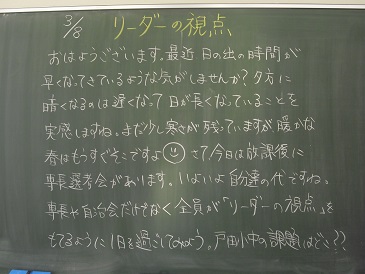 3/8 リーダーの視点
おはようございます。最近 日の出の時間が
早くなってきているような気がしませんか？夕方に
暗くなるのは遅くなって 日が長くなっていることを
実感しますね。まだ少し寒さが残っていますが、暖かな
春はもうすぐそこですよ さて今日は放課後に
専長選考会があります。いよいよ自分達の代ですね。
専長や自治会だけでなく 全員が「リーダーの視点」を
もてるように1日を過ごしてみよう。戸田小中の課題はどこ？？